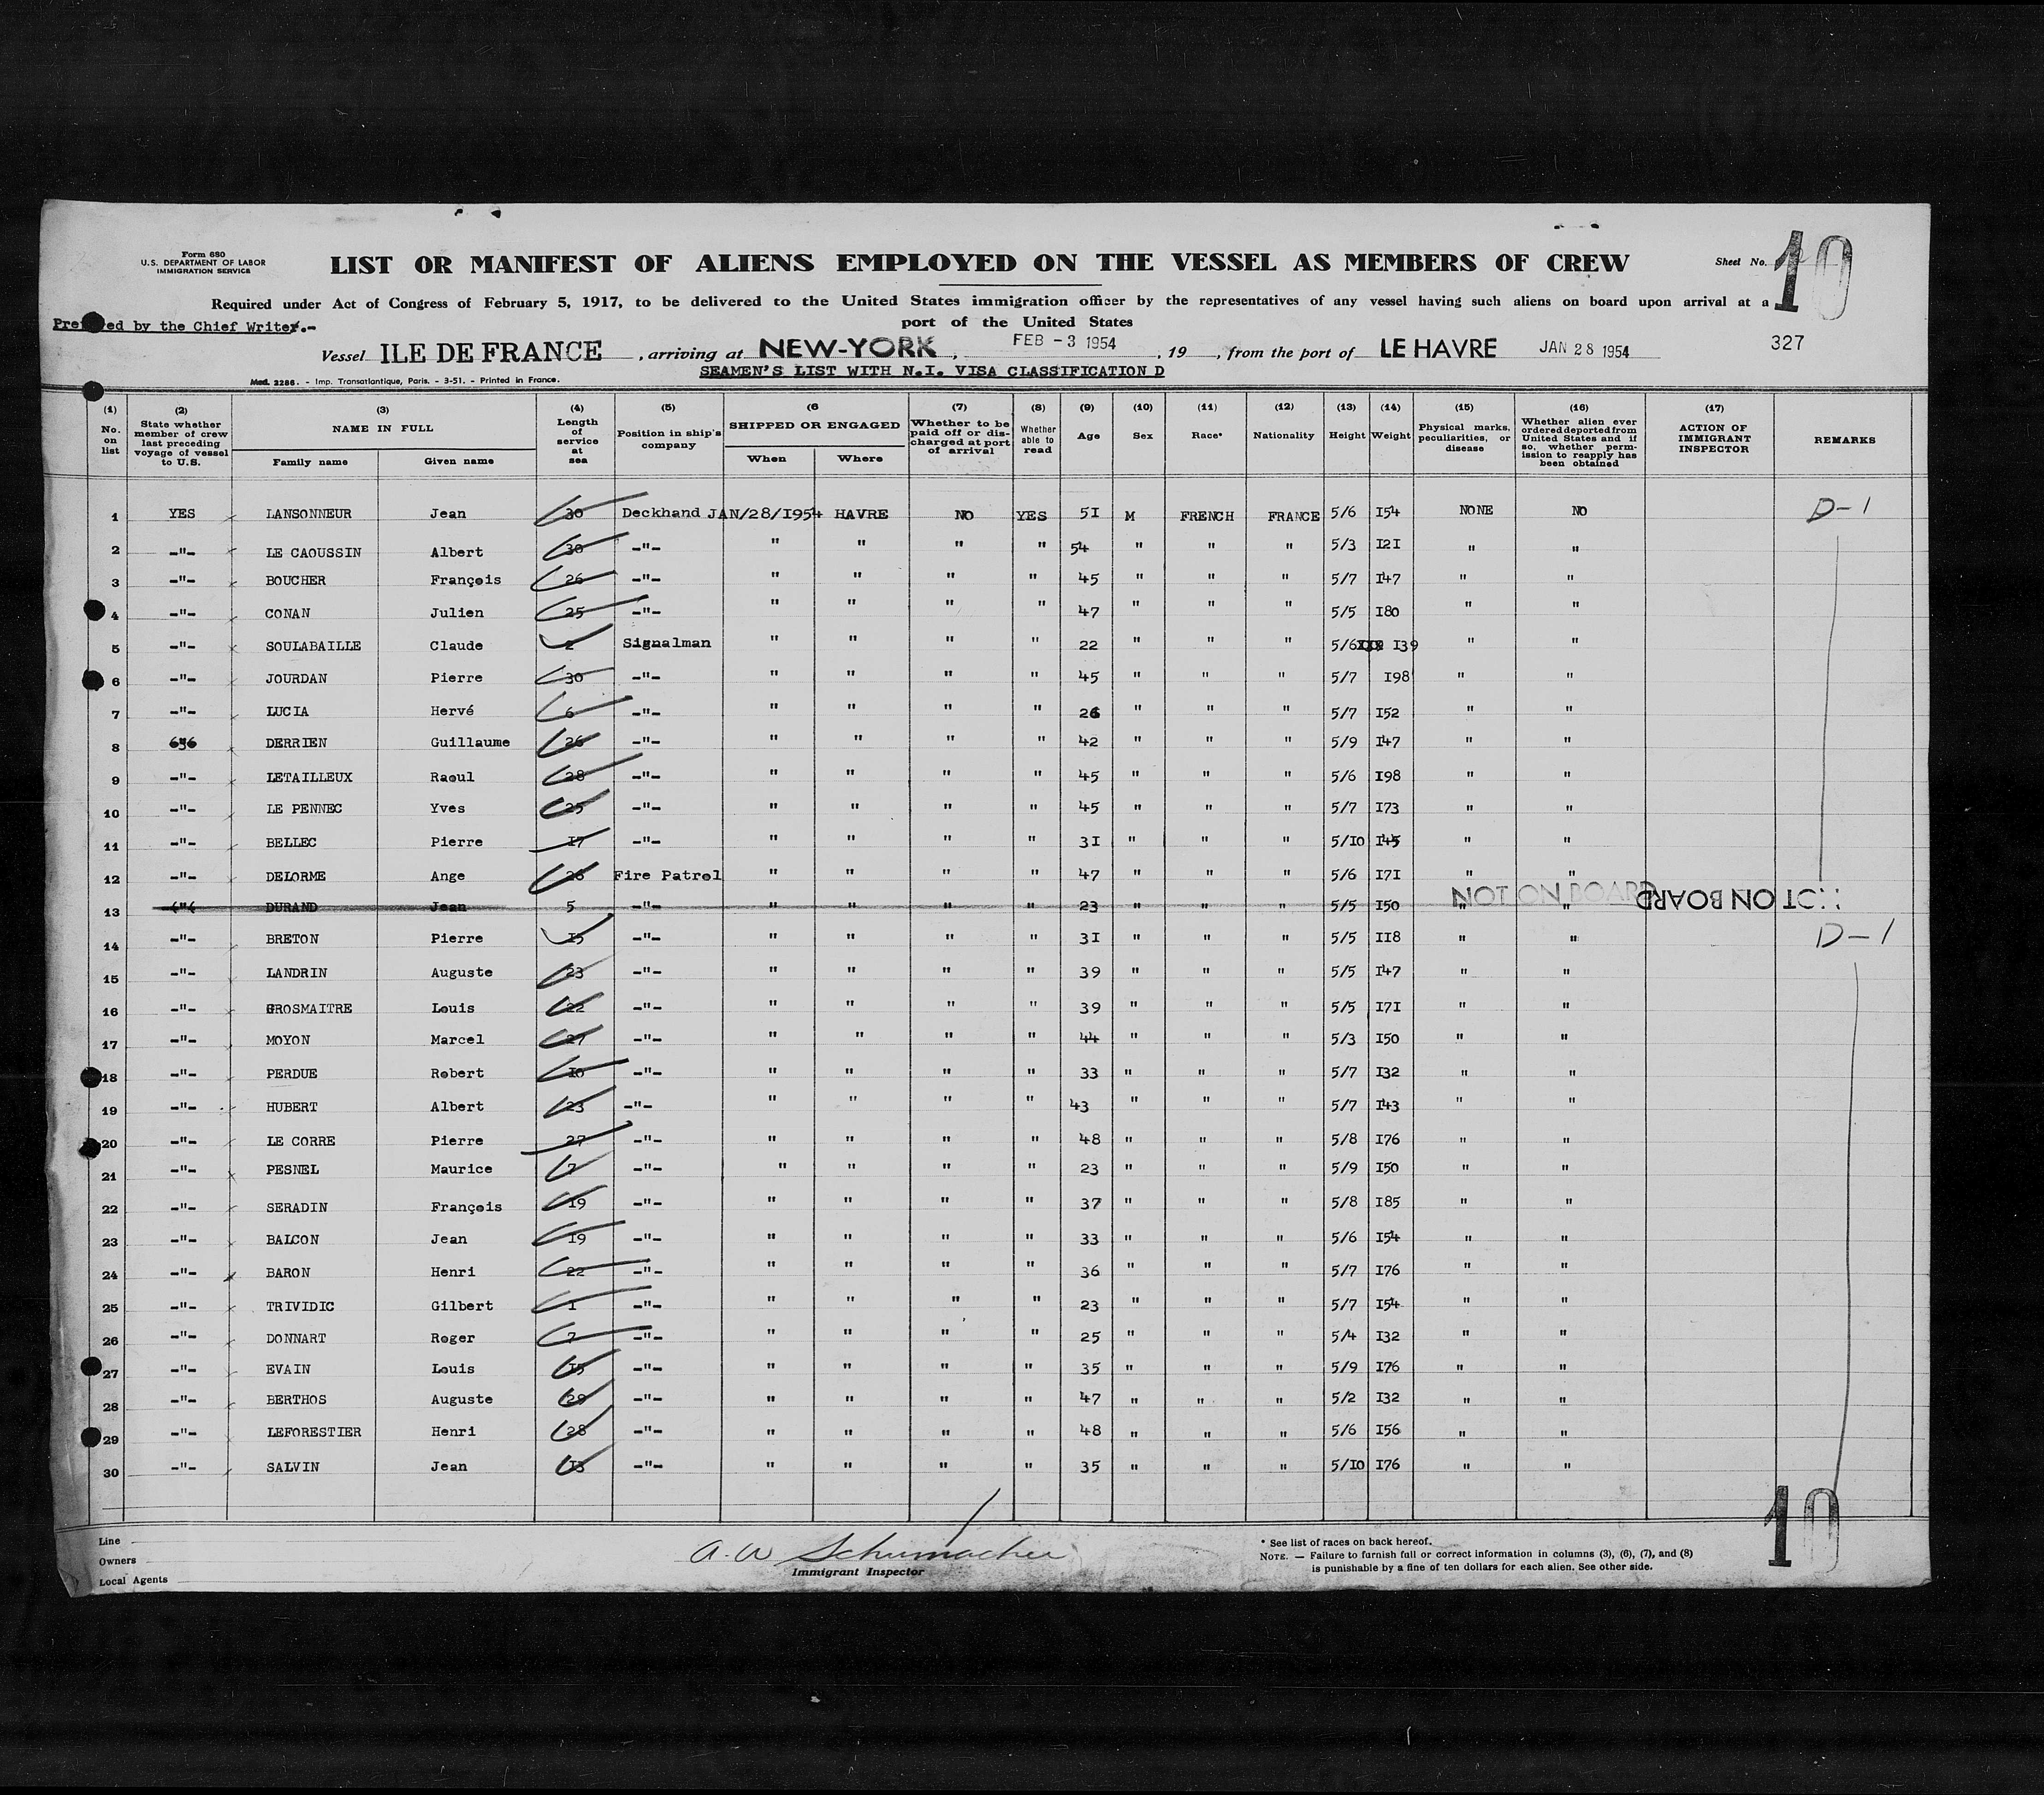 Form 680
U.S. DEPARTMENT OF LABOR
IMMIGRATION SERVICE
LIST OR MANIFEST OF ALIENS EMPLOYED ON THE VESSEL AS MEMBERS OF CREW
Sheet No. 10
Required under Act of Congress of February 5, 1917, to be delivered to the United States immigration officer by the representatives of any vessel having such aliens on board upon arrival at a
port of the United States
Prepared by the Chief Writer.-
Vessel ILE DE FRANCE, arriving at NEW-YORK, FEB -3 1954, 19, from the port of LE HAVRE JAN 28 1954 327
SEAMEN'S LIST WITH N.I. VISA CLASSIFICATION D
Mod. 2286. - Imp. Transatlantique, Paris. - 3-51. - Printed in France.
(1) No. on list (2) State whether member of crew last preceding voyage of vessel to U.S. (3) NAME IN FULL Family name Given name (4) Length of service at sea (5) Position in ship's company (6 SHIPPED OR ENGAGED When Where (7) Whether to be paid off or discharged at port of arrival (8) Whether able to read (9) Age (10) Sex (11) Race* (12) Nationality (13) Height (14) Weight (15) Physical marks, peculiarities, or disease (16) Whether alien ever ordered deported from United States and if so, whether permission to reapply has been obtained (17) ACTION OF IMMIGRANT INSPECTOR REMARKS
1 YES LANSONNEUR Jean 30 Deckhand JAN/28/1954 HAVRE NO YES 51 M FRENCH FRANCE 5/6 154 NONE NO D-1
2 -"- LE CAOUSSIN Albert 30 -"- " " " " 54 " " " 5/3 121 " "
3 -"- BOUCHER François 26 -"- " " " " 45 " " " 5/7 147 " "
4 -"- CONAN Julien 25 -"- " " " " 47 " " " 5/5 180 " "
5 -"- SOULABAILLE Claude 2 Signalman " " " " 22 " " " 5/6 139 " "
6 -"- JOURDAN Pierre 30 -"- " " " " 45 " " " 5/7 198 " "
7 -"- LUCIA Hervé 6 -"- " " " " 26 " " " 5/7 152 " "
8 DERRIEN Guillaume 26 -"- " " " " 42 " " " 5/9 147 " "
9 -"- LETAILLEUX Raoul 28 -"- " " " " 45 " " " 5/6 198 " "
10 -"- LE PENNEC Yves 25 -"- " " " " 45 " " " 5/7 173 " "
11 -"- BELLEC Pierre 17 -"- " " " " 31 " " " 5/10 145 " "
12 -"- DELORME Ange 26 Fire Patrol " " " " 47 " " " 5/6 171 " "
13 DURAND Jean 5 -"- " " " " 23 " " " 5/5 150 " " NOT ON BOARD NOT ON BOARD
14 -"- BRETON Pierre 15 -"- " " " " 31 " " " 5/5 118 " " D-1
15 -"- LANDRIN Auguste 23 -"- " " " " 39 " " " 5/5 147 " "
16 -"- GROSMAITRE Louis 22 -"- " " " " 39 " " " 5/5 171 " "
17 -"- MOYON Marcel 27 -"- " " " " 44 " " " 5/3 150 " "
18 -"- PERDUE Robert 10 -"- " " " " 33 " " " 5/7 132 " "
19 -"- HUBERT Albert 23 -"- " " " " 43 " " " 5/7 143 " "
20 -"- LE CORRE Pierre 27 -"- " " " " 48 " " " 5/8 176 " "
21 -"- PESNEL Maurice 7 -"- " " " " 23 " " " 5/9 150 " "
22 -"- SERADIN François 19 -"- " " " " 37 " " " 5/8 185 " "
23 -"- BALCON Jean 19 -"- " " " " 33 " " " 5/6 154 " "
24 -"- BARON Henri 22 -"- " " " " 36 " " " 5/7 176 " "
25 -"- TRIVIDIC Gilbert 1 -"- " " " " 23 " " " 5/7 154 " "
26 -"- DONNART Roger 7 -"- " " " " 25 " " " 5/4 132 " "
27 -"- EVAIN Louis 15 -"- " " " " 35 " " " 5/9 176 " "
28 -"- BERTHOS Auguste 29 -"- " " " " 47 " " " 5/2 132 " "
29 -"- LEFORESTIER Henri 28 -"- " " " " 48 " " " 5/6 156 " "
30 -"- SALVIN Jean 13 -"- " " " " 35 " " " 5/10 176 " "
10
Line
Owners
Local Agents
A. W Schumacher
Immigrant Inspector
* See list of races on back hereof.
NOTE. — Failure to furnish full or correct information in columns (3), (6), (7), and (8)
is punishable by a fine of ten dollars for each alien. See other side.